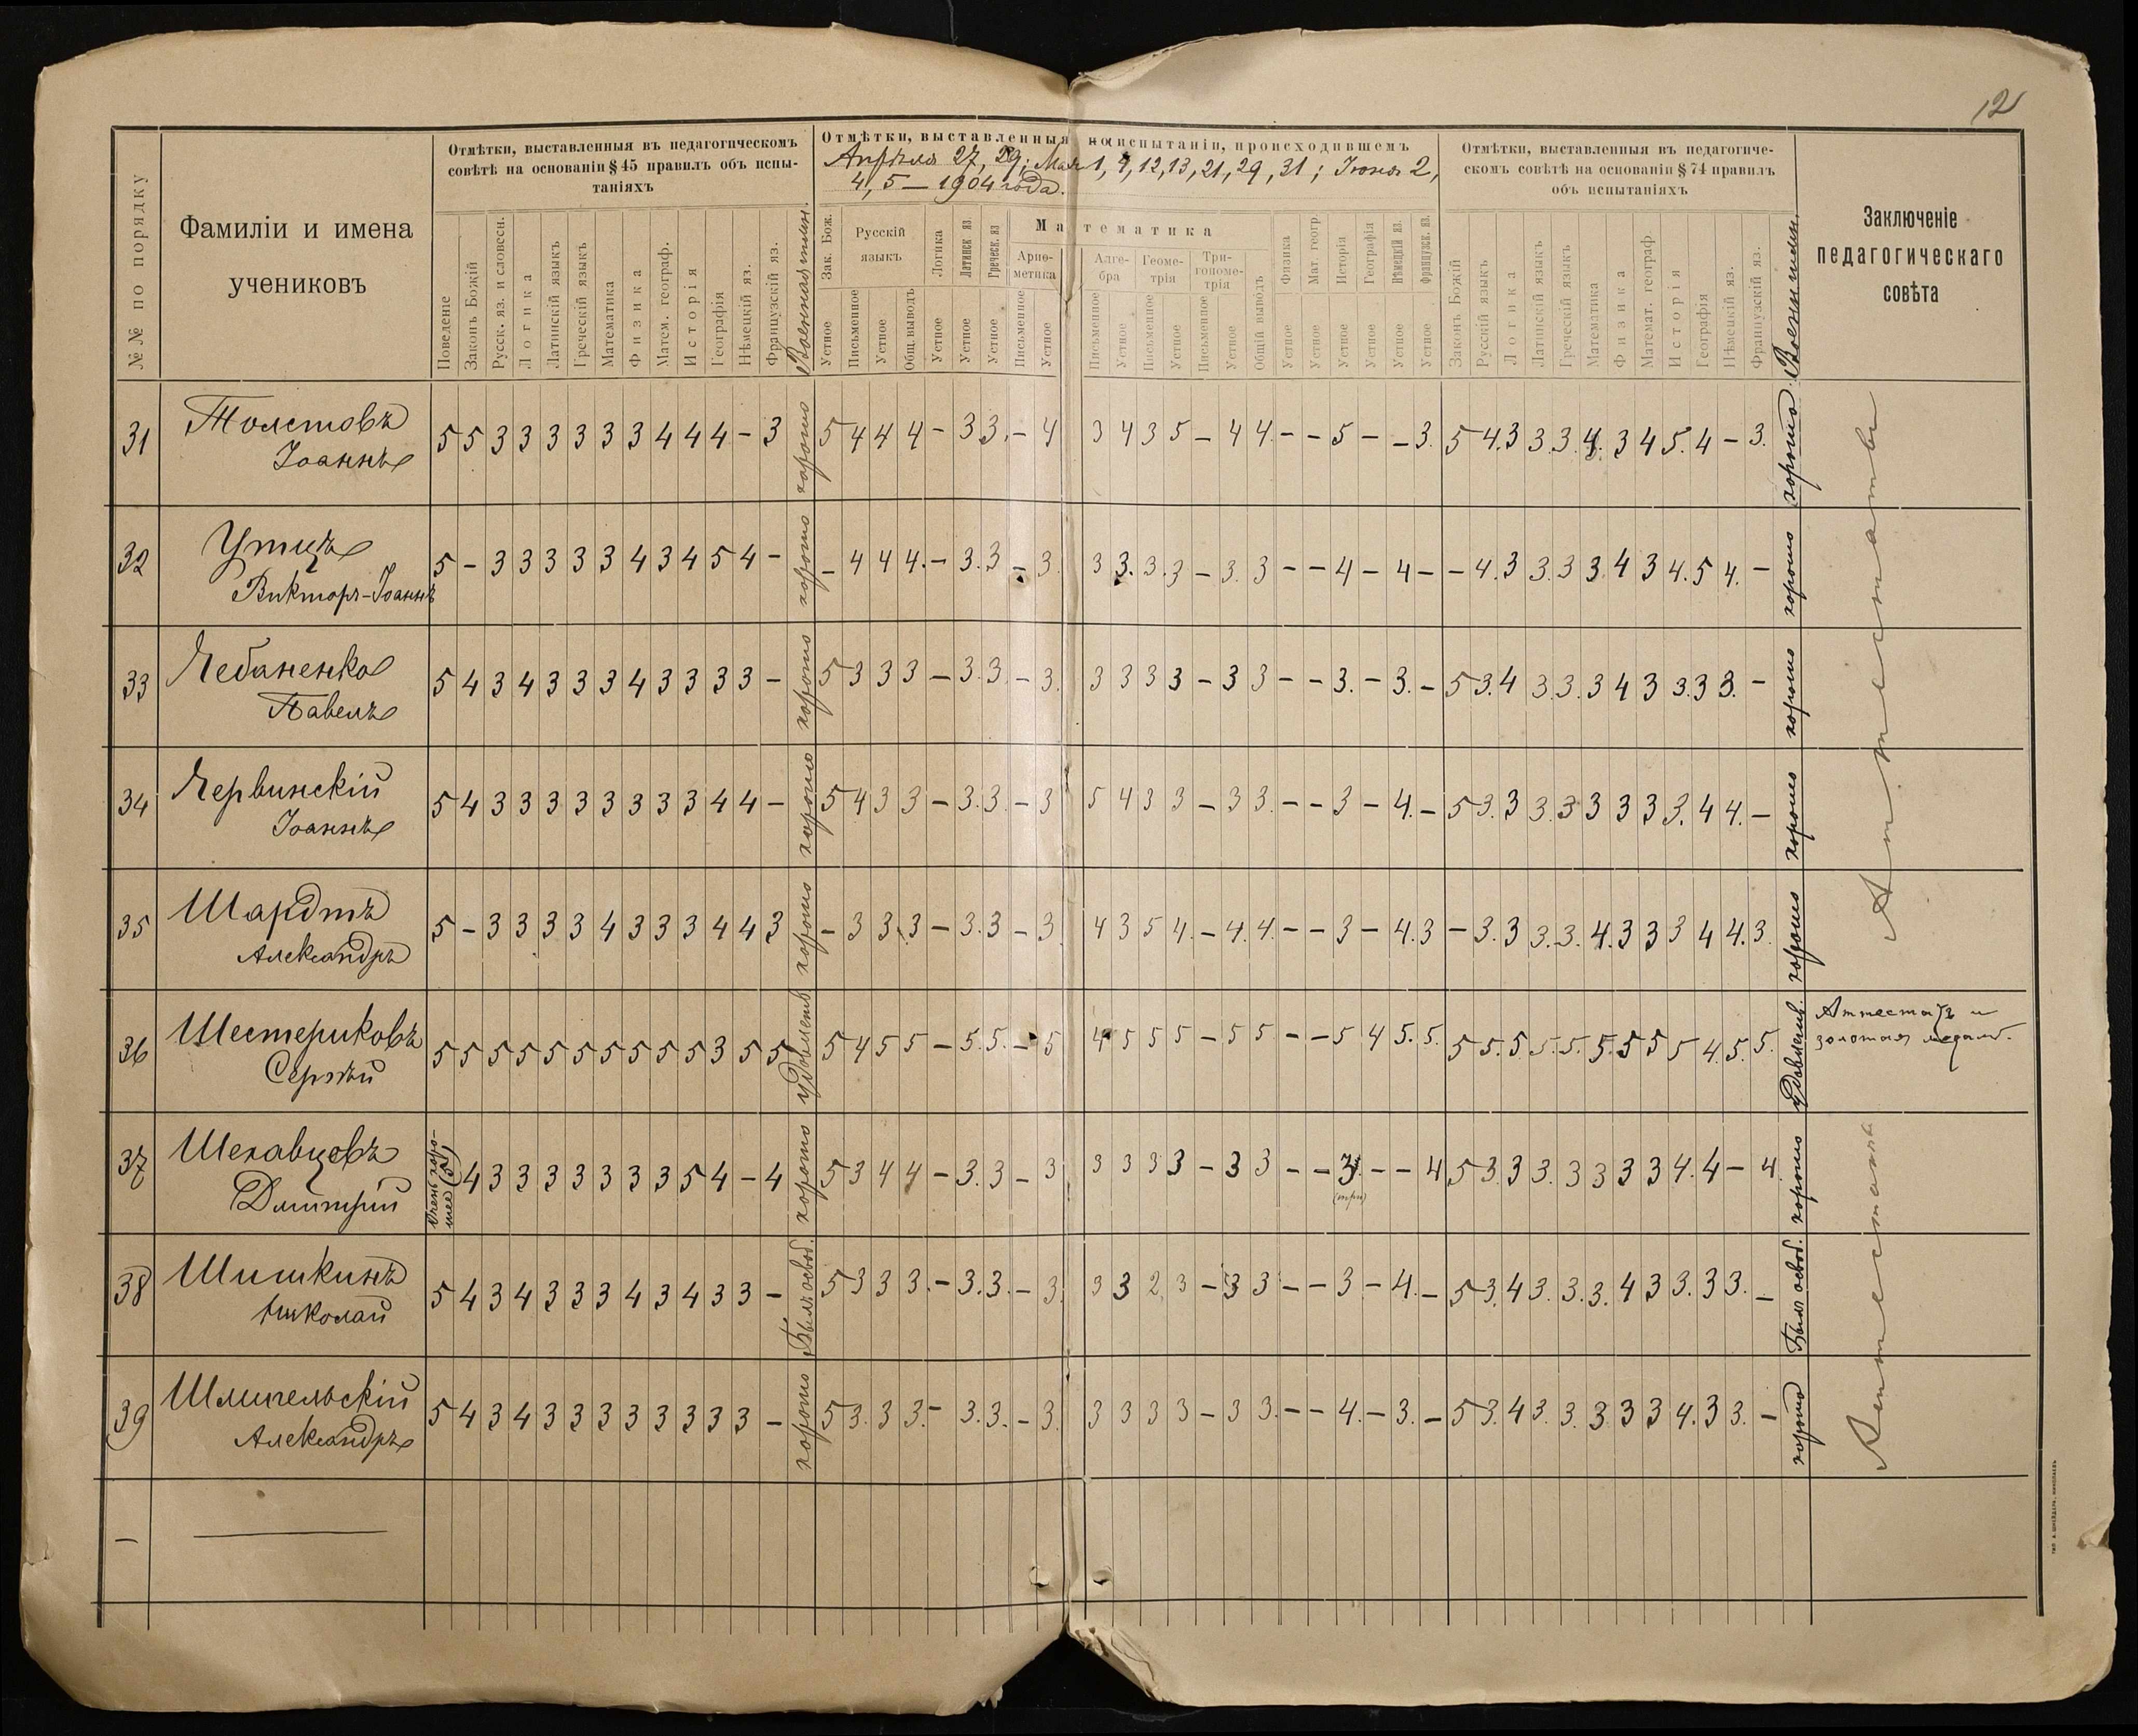 12
№№ по порядку
Фамиліи и имена
учениковъ
Отмѣтки, выставленныя въ педагогическомъ
совѣтѣ на основаніи § 45 правилъ объ испы-
таніяхъ
Поведеніе
Законъ Божій
Русск. яз. и словесн.
Логика
Латинскій языкъ
Греческій языкъ
Математика
Физика
Матем. географ.
Исторія
Географія
Нѣмецкій яз.
Французскій яз.
Отмѣтки, выставленныя на испытаніи, происходившемъ
Апрѣля 27, 29; Мая 1, 7, 12, 13, 21, 29, 31; Іюня 2,
4, 5 — 1904 года.
Зак. Бож.
Русскій
языкъ
Логика
Латинск. яз.
Греческ. яз
Математика
Арие-
метика
Алге-
бра
Геоме-
трія
Три-
гономе-
трія
Общій выводъ
Физика
Мат. геогр.
Исторія
Географія
Нѣмецкій яз.
Французск. яз.
Устное
Письменное
Устное
Общ. выводъ
Устное
Устное
Устное
Письменное
Устное
Письменное
Устное
Письменное
Устное
Письменное
Устное
Устное
Устное
Устное
Устное
Устное
Устное
Отмѣтки, выставленныя въ педагогиче-
скомъ совѣтѣ на основаніи § 74 правилъ
объ испытаніяхъ
Законъ Божій
Русскій языкъ
Логика
Латинскій языкъ
Греческій языкъ
Математика
Физика
Математ. географ
Исторія
Географія
Нѣмецкій яз.
Французскій яз.
Заключеніе
педагогическаго
совѣта
31 Толстовъ
Іоаннъ
5 5 3 3 3 3 3 3 4 4 4 – 3 хорошо 5 4 4 4 – 3 3. – 4 3 4 3 5 – 4 4. – – 5 – – 3. 5 4. 3 3. 3. 4. 3 4 5. 4 – 3. хорошо
32 Утцъ
Викторъ-Іоаннъ
5 – 3 3 3 3 3 4 3 4 5 4 – хорошо – 4 4 4. – 3. 3 – 3. 3 3. 3. 3 – 3. 3 – – 4 – 4 – – 4. 3 3. 3 3. 4 3 4. 5 4. – хорошо
33 Чебаненко
Павелъ
5 4 3 4 3 3 3 4 3 3 3 3 – хорошо 5 3 3 3 – 3. 3. – 3. 3 3 3 3 – 3 3 – – 3. – 3. – 5 3. 4 3. 3. 3 4 3 3. 3 3. – хорошо
34 Червинскій
Іоаннъ
5 4 3 3 3 3 3 3 3 3 4 4 – хорошо 5 4 3 3 – 3. 3. – 3 5 4 3 3 – 3 3. – – 3 – 4. – 5 3. 3 3. 3 3 3 3 3. 4 4. – хорошо
35 Шардтъ
Александръ
5 – 3 3 3 3 4 3 3 3 4 4 3 хорошо – 3 3. 3 – 3. 3 – 3. 4 3 5 4. – 4. 4. – – 3 – 4. 3 – 3. 3 3. 3. 4. 3 3 3 4 4. 3. хорошо
36 Шестериковъ
Сергѣй
5 5 5 5 5 5 5 5 5 5 3 5 5 5 4 5 5 – 5. 5. – 5 4 5 5 5 – 5 5 – – 5 4 5. 5. 5 5. 5 5. 5. 5. 5 5 5 4. 5. 5.
Аттестатъ и
золотая медаль.
37 Шелавцовъ
Дмитрій
Очень хоро-
шее (5) 4 3 3 3 3 3 3 3 5 4 – 4 хорошо 5 3 4 4 – 3. 3 – 3 3 3 3 3 – 3 3 – – 3. – – 4 5 3. 3 3. 3 3 3 3 4. 4 – 4 хорошо
(три)
38 Шишкинъ
Николай
5 4 3 4 3 3 3 4 3 4 3 3 – Былъ освоб. 5 3 3 3. – 3. 3. – 3. 3 3 2 3 – 3 3 – – 3 – 4. – 5 3. 4 3. 3. 3. 4 3 3. 3 3. – Былъ освоб.
39 Шмигельскій
Александръ
5 4 3 4 3 3 3 3 3 3 3 3 – хорошо 5 3. 3 3. – 3. 3. – 3. 3 3 3 3 – 3 3. – – 4. – 3. – 5 3. 4 3. 3. 3. 3 3 4. 3 3. – хорошо
Аттестатъ
Аттестатъ